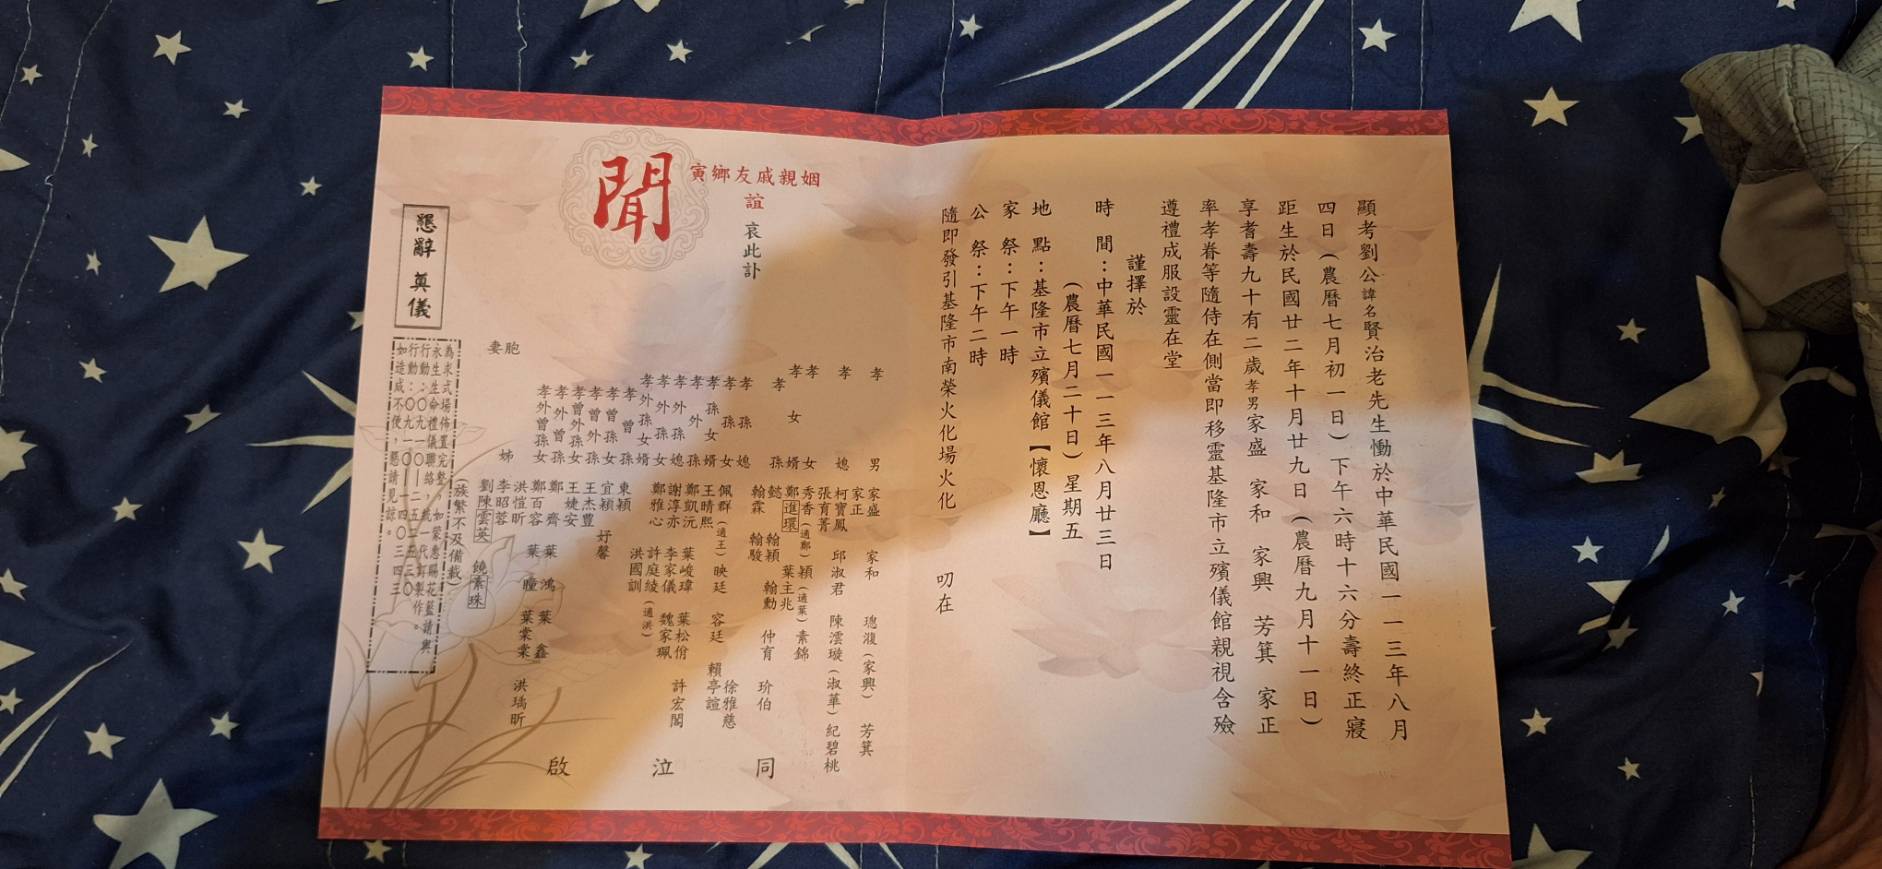 顯考劉公諱名賢治老先生慟於中華民國一一三年八月
四日(農曆七月初一日)下午六時十六分壽終正寢
距生於民國廿二年十月廿九日(農曆九月十一日)
享耆壽九十有二歲孝男家盛 家和 家興 芳箕 家正
率孝眷等隨侍在側當即移靈基隆市立殯儀館親視含殮
遵禮成服設靈在堂
謹擇於
時 間:中華民國一一三年八月廿三日
(農曆七月二十日)星期五
地 點:基隆市立殯儀館【懷恩廳】
家 祭:下午一時
公 祭:下午二時
隨即發引基隆市南榮火化場火化 叨在
姻親戚友鄉寅
誼 哀此訃
聞
孝男 家盛 家和 璁澓(家興) 芳箕
家正
孝媳 柯寶鳳 邱淑君 陳澐璇(淑華) 紀碧桃
張育菁
孝女 秀香(適鄭) 穎(適葉) 素錦
孝女婿 鄭進環 葉主兆
孝孫 懿 翰穎 翰勳 仲育 玠伯
翰霖 翰駿
孝孫媳 徐雅慈
孝孫女 佩群(適王) 映廷 容廷 賴亭諠
孝孫女婿 王晴熙
孝外孫 鄭凱沅 葉峻瑋 葉松佾 許宏閣
孝外孫媳 謝淳亦 李家儀 魏家珮
孝外孫女 鄭雅心 許庭綾(適洪)
孝外孫女婿 洪國訓
孝曾孫 東穎
孝曾孫女 宜穎 妤馨
孝曾外孫 王杰豐
孝曾外孫女 王婕安
孝外曾孫 鄭齊 葉鴻 葉鑫
孝外曾孫女 鄭百容 葉瞳 葉棠棠
洪愷昕 洪瑀昕
李昭蓉
胞妻姊 劉陳雲英 饒素珠
(族繁不及備載)
同 泣 啟
懇辭 奠儀
為求式場佈置完整,如蒙惠賜花籃請與
永生生命禮儀聯絡,統一代訂製作。
行動:〇九一〇-二五二五三〇
行動:〇九一〇-一四〇三四三
如造成不便,懇請見諒。